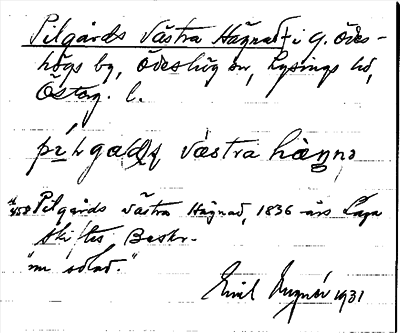 Pilgårds Västra Hägnad i G. Ödes-
högs by, Ödeshög sn, Lysings hd,
Östarg. l.
västra
Pilgårds Västra Hägnad, 1836 års Laga
skiftes Beskr.
"nu odlad."
Emil 1931